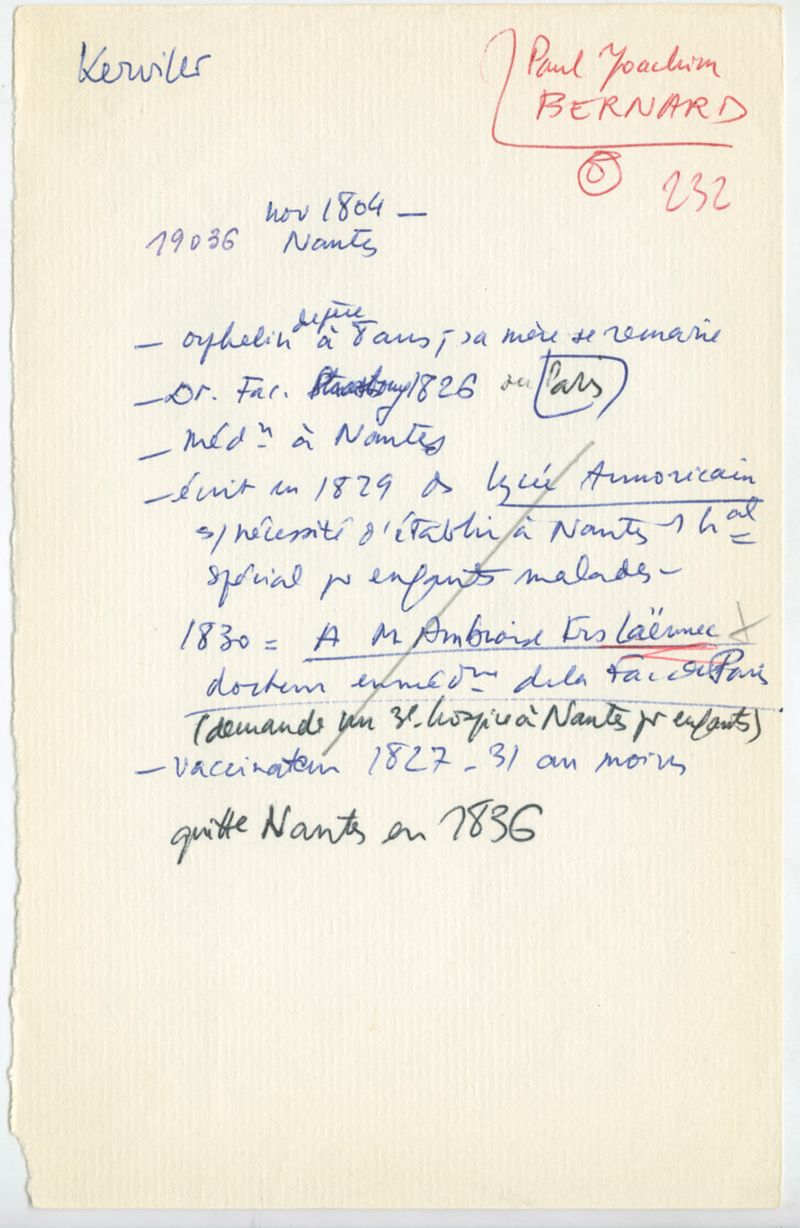 Kerviler
Paul Joachim
BERNARD
232
nov 1804 —
19036 Nantes
— orphelin de père à 8 ans, sa mère se remarie
— Dr. Fac. Strasbourg 1826 ou Paris
— méd^n à Nantes
— écrit en 1829 ds Lycée Armoricain
s/ nécessité d'établir à Nantes 1 h^al
spécial pr enfants malades —
1830 = A Mr Ambroise Frs Laënnec
docteur en méd^ne de la Fac de Paris
(demande un 3e hospice à Nantes pr enfants)
— vaccinateur 1827 - 31 au moins
quitte Nantes en 1836